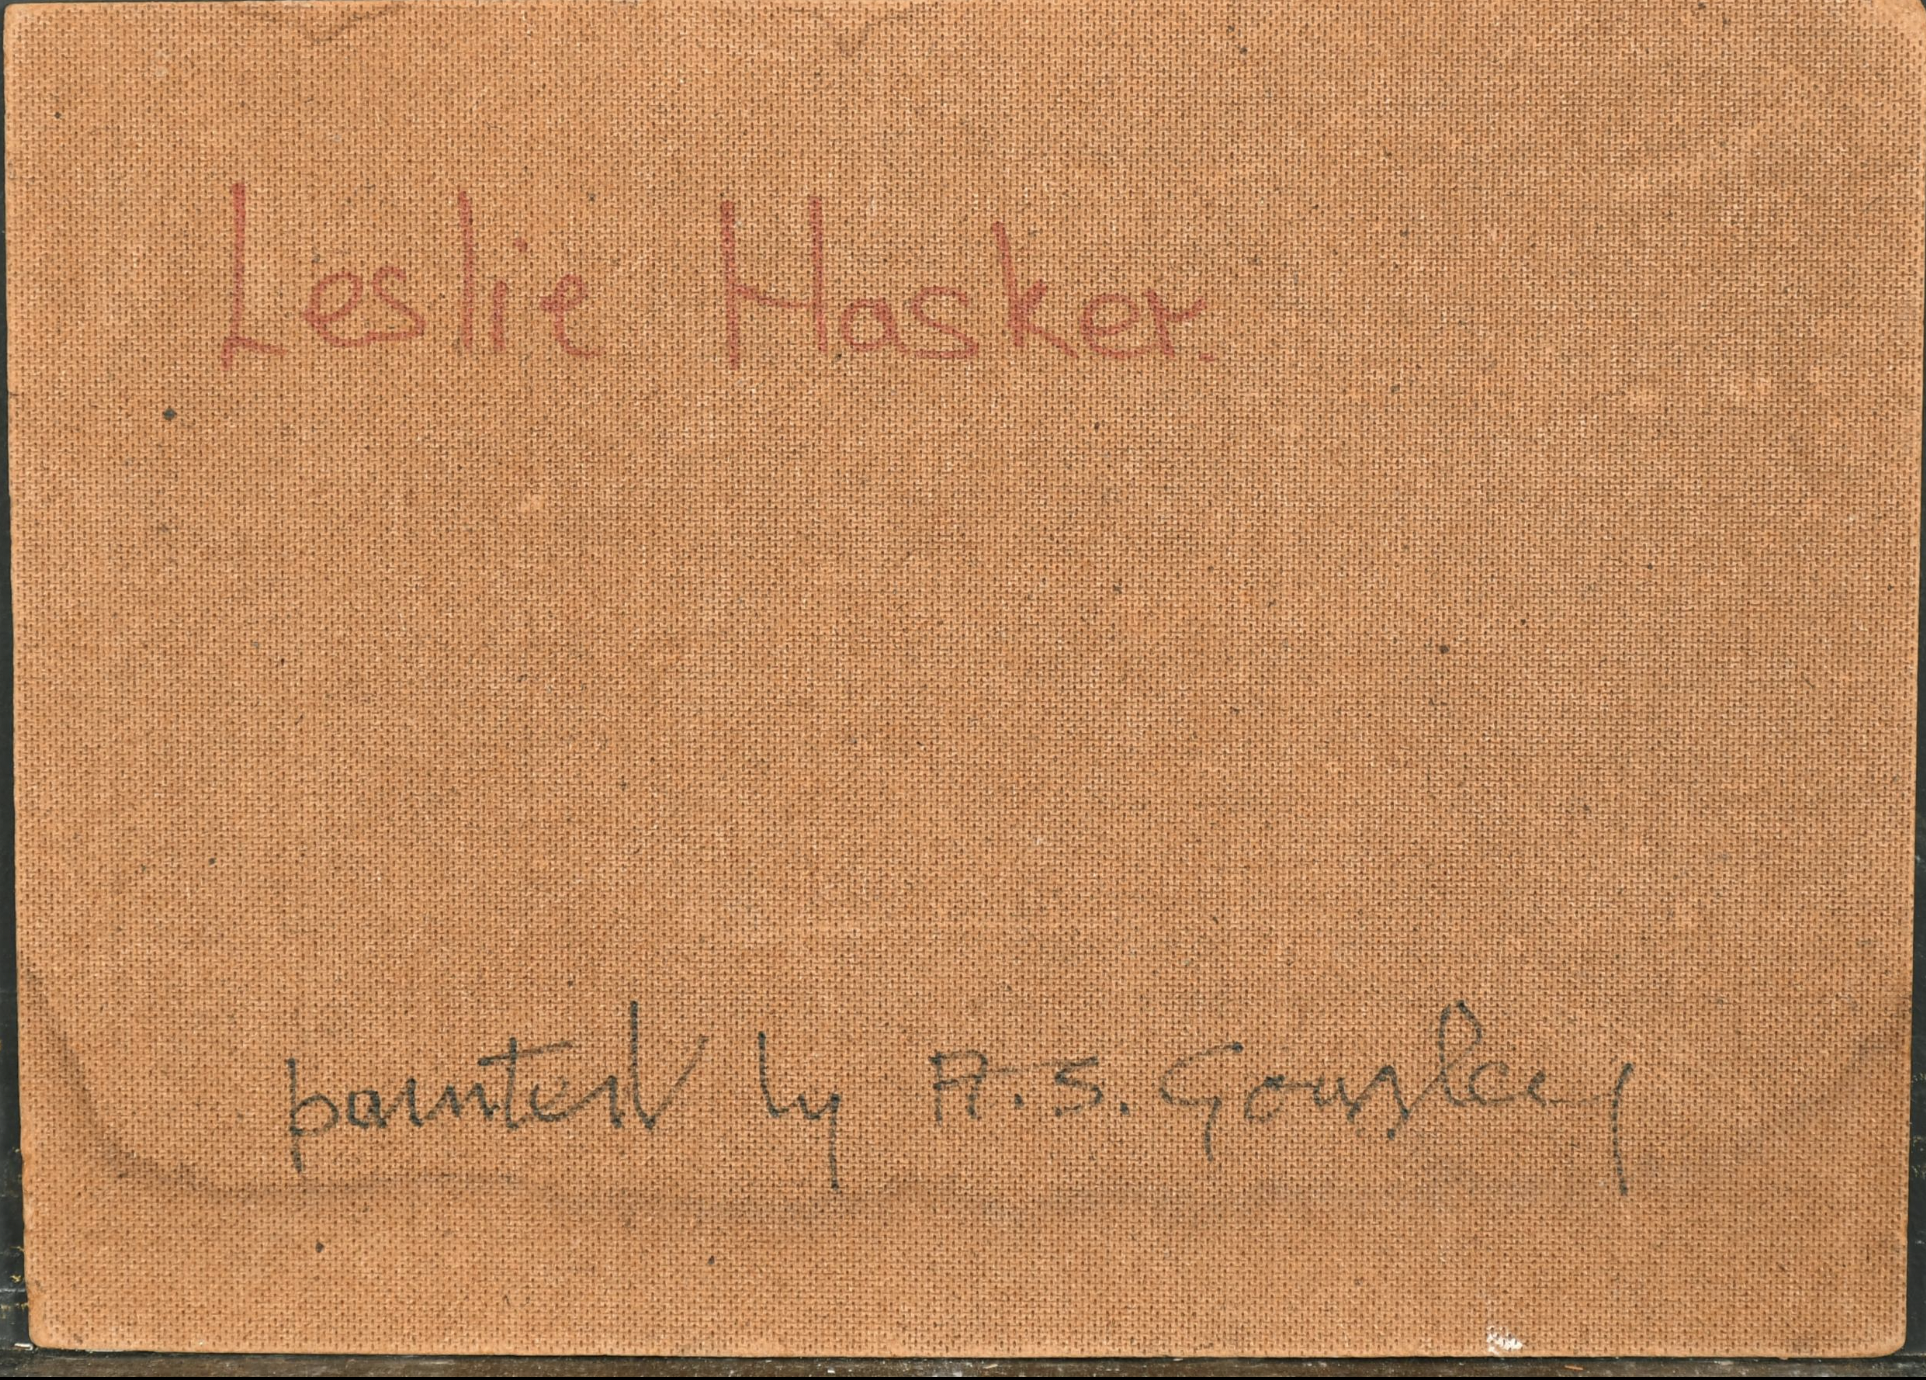 Leslie Hasker.
painted by